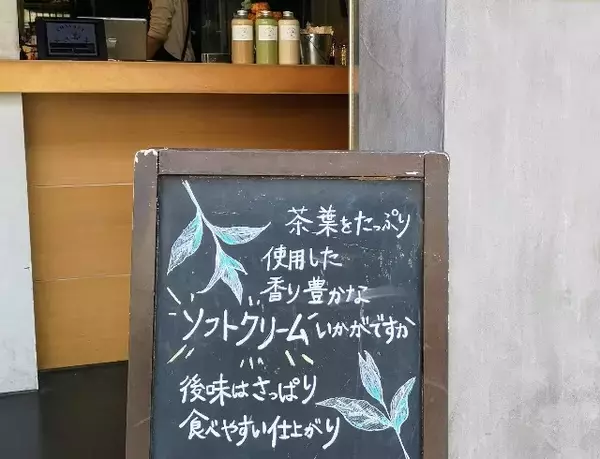 茶葉をたっぷり
使用した
香り豊かな
ソフトクリームいかがですか
後味はさっぱり
食べやすい仕上がり